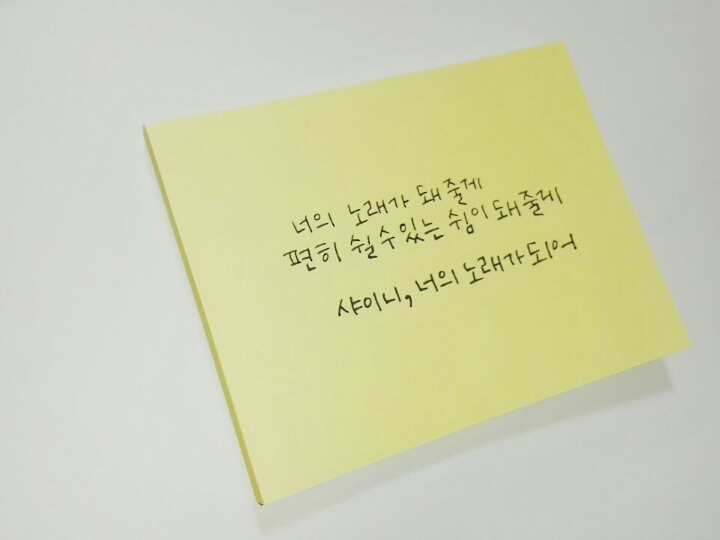 너의 노래가 돼 줄게
편히 쉴 수 있는 쉼이 돼 줄게
샤이니, 너의 노래가 되어